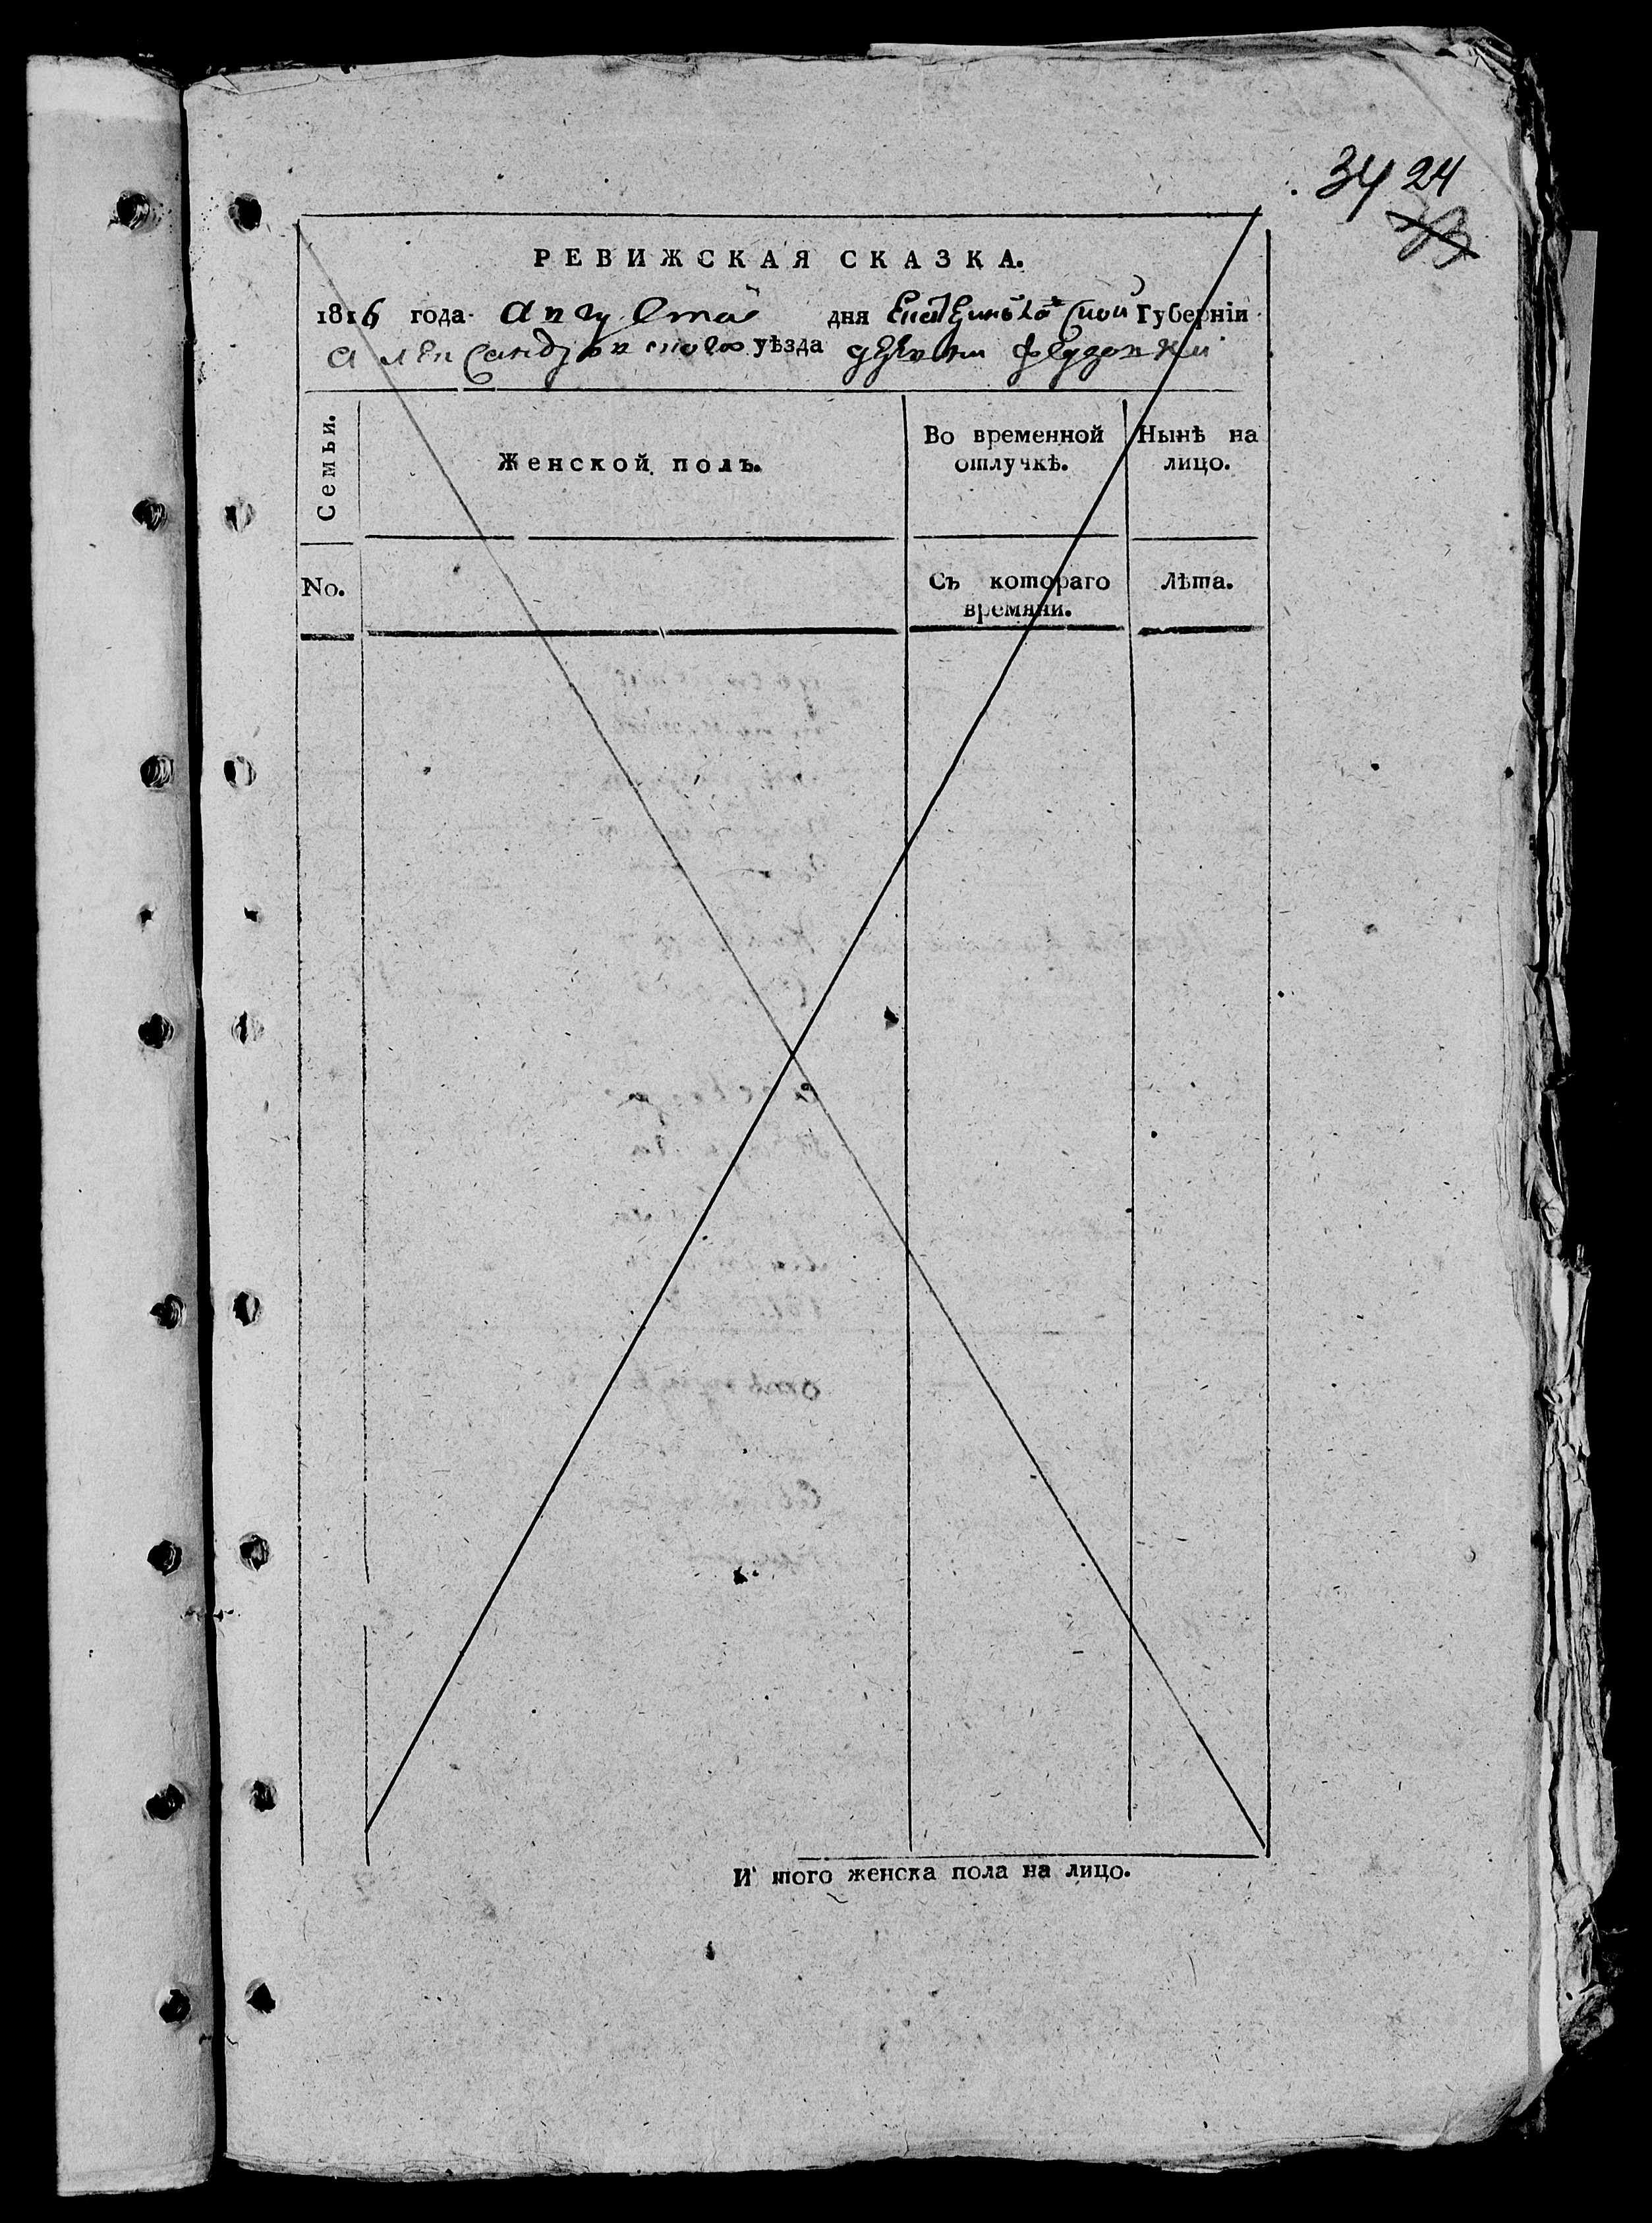 34 24
РЕВИЖСКАЯ СКАЗКА.
1816 года августа дня Екатеринославской Губерніи
александровского уѣзда деревни федоровки
Семьи.
Женской полъ.
Во временной
отлучкѣ.
Нынѣ на
лицо.
No.
Съ котораго
времяни.
Лѣта.
И того женска пола на лицо.